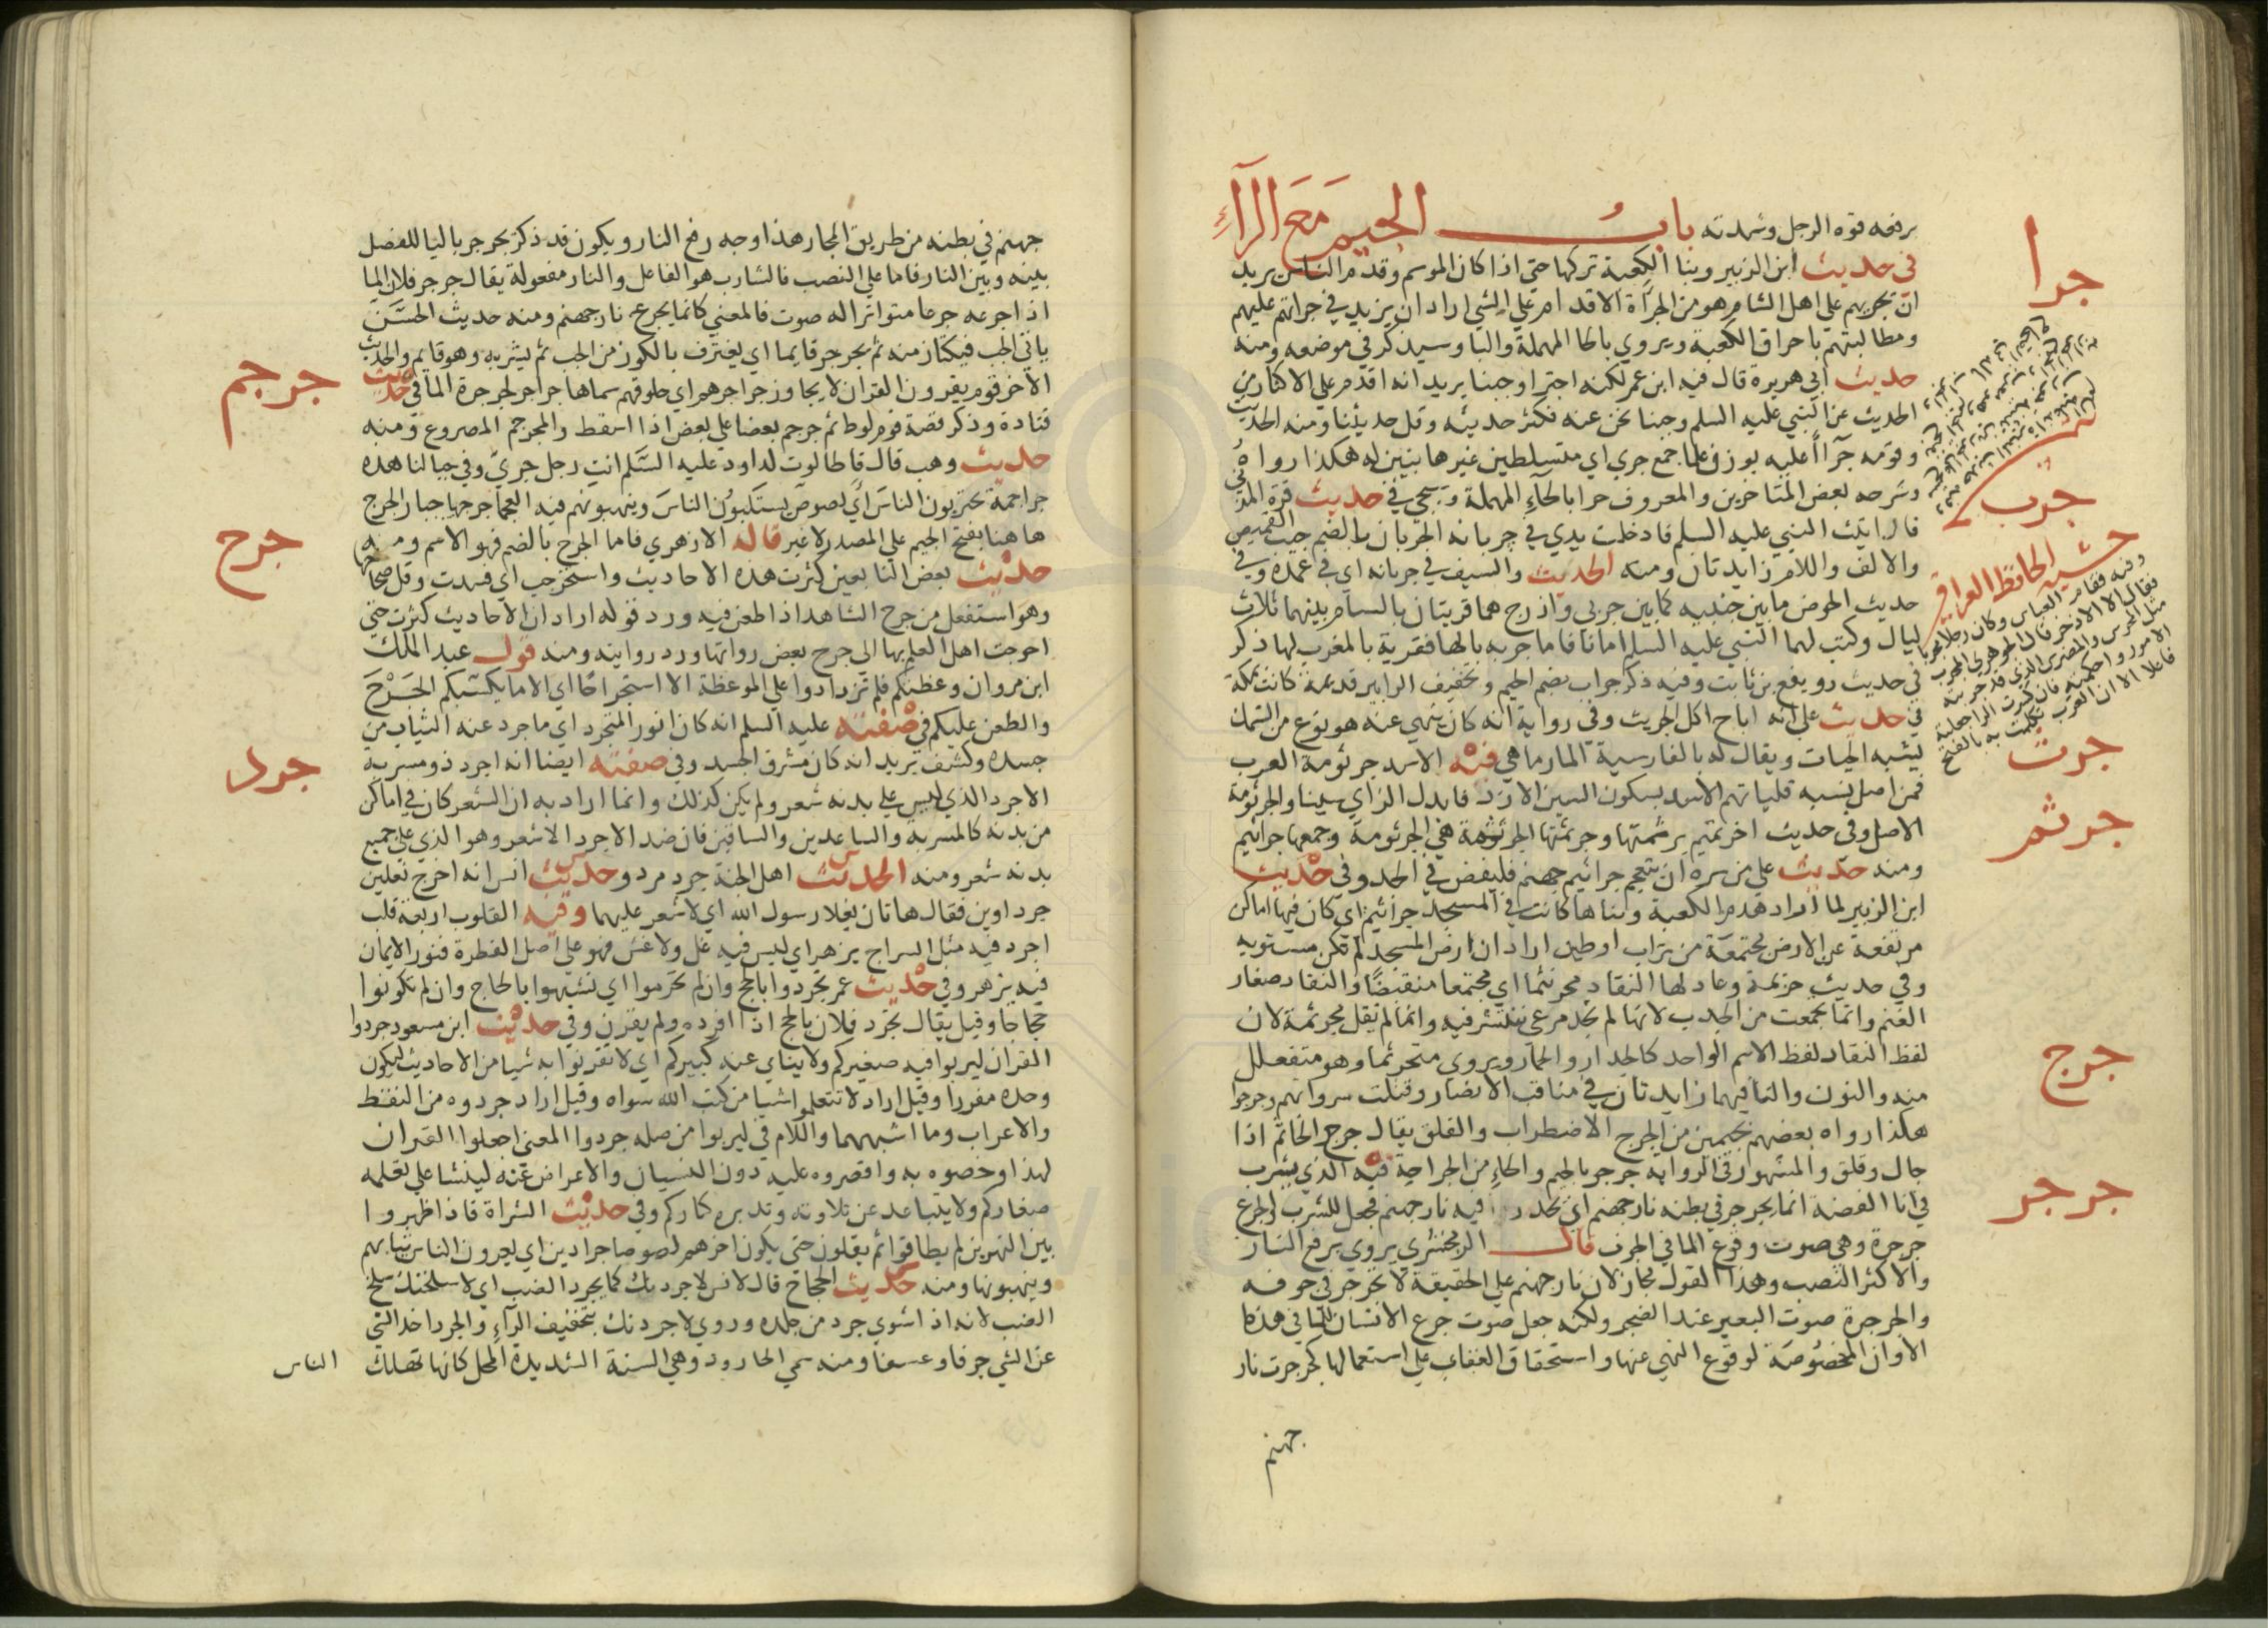 يرفعه قوة الرجل وشدته باب الجيم مع الراء
في حديث ابن الزبير وبنا الكعبة تركها حتى اذا كان الموسم وقدم الناس يريد
ان يجريهم على اهل الشام هو من الجرأة الاقدام على الشي اراد ان يزيد في جراتهم عليهم
ومطالبتهم باحراق الكعبة ويروي بالحا المهملة والبا وسيذكر في موضعه ومنه
حديث ابي هريرة قال فيه ابن عمر لكنه اجترا وجبنا يريد انه اقدم على الاكثار من
الحديث عن النبي عليه السلم وجبنا نحن عنه فكثر حديثه وقل حديثنا ومنه الحديث
وقومه جرآا عليه بوزن علما جمع جري اي متسلطين غير هايبين له هكذا رواه
وشرحه بعض المتاخرين والمعروف حرا بالحاء المهملة وسيجي في حديث قرة المزني
قال اتيت النبي عليه السلم فادخلت يدي في جربانه الجربان بالضم جيب القميص
والالف واللام زايدتان ومنه الحديث والسيف في جربانه اي في غمده وفي
حديث الحوض ما بين جنبيه كما بين جربى واذرح هما قريتان بالشام بينهما ثلاث
ليال وكتب لهما النبي عليه السلم امانا فاما جربه بالها فقرية بالمغرب لها ذكر
في حديث رويفع بن ثابت وفيه ذكر جراب بضم الجيم وتخفيف الرا بير قديمة كانت بمكة
في حديث علي انه اباح اكل الجريث وفي رواية انه كان ينهى عنه هو نوع من السمك
يشبه الحيات ويقال له بالفارسية المارماهي فيه الاسد جرثومة العرب
فمن اضل نسبه فلياتهم الاسد بسكون السين الازد فابدل الزاي سينا والجرثومة
الاصل وفي حديث اخر تميم برثمتها وجرثمتها الجرثمة هي الجرثومة وجمعها جراثيم
ومنه حديث علي من سره ان يتقحم جراثيم جهنم فليقض في الجد وفي حديث
ابن الزبير لما اراد هدم الكعبة وبناها كانت في المسجد جراثيم اي كان فيها اماكن
مرتفعة عن الارض مجتمعة من تراب او طين اراد ان ارض المسجد لم تكن مستوية
وفي حديث خزيمة وعاد لها النقاد مجرنثما اي مجتمعا منقبضا والنقاد صغار
الغنم وانما تجمعت من الجدب لانها لم تجد مرعى تنتشر فيه وانما لم يقل مجرنثمة لان
لفظ النقاد لفظ الاسم الواحد كالجدار والحمار ويروي متجرثما وهو متفعلل
منه والنون والتا فيهما زايدتان في مناقب الانصار وقتلت سرواتهم وجرجوا
هكذا رواه بعضهم بجيمين من الجرج الاضطراب والقلق يقال جرج الخاتم اذا
جال وقلق والمشهور في الرواية جرحو بالجيم والحاء من الجراحة فيه الذي يشرب
في انا الفضة انما يجرجر في بطنه نار جهنم اي يحدر فيه نار جهنم فجعل للشرب والجرع
جرجرة وهي صوت وقوع الما في الجوف قال الزمخشري يروي برفع النار
والاكثر النصب وهذا القول مجاز لان نار جهنم على الحقيقة لا تجرجر في جوفه
والجرجرة صوت البعير عند الضجر ولكنه جعل صوت جرع الانسان للما في هذه
الاوان المخصوصة لوقوع النهي عنها واستحقاق العقاب على استعمالها كجرجرت نار
جهنم
جرا
جرب
حشية الحافظ العراقي
وفيه فقام العباس وكان رجلا مجربا
فقال الا الاذخر قال الجوهري المجرب
مثل المجرس والمضرس الذي قد جربته
الامور واحكمته فان كسرت الرا جعلته
فاعلا الا ان العرب تكلمت به بالفتح
جرث
جرثم
جرج
جرجر
جهنم في بطنه من طريق المجاز هذا وجه رفع النار ويكون قد ذكر يجرجر باليا للفصل
بينه وبين النار فاما على النصب فالشارب هو الفاعل والنار مفعوله يقال جرجر فلان الما
اذا جرعه جرعا متواترا له صوت فالمعني كانما يجرع نار جهنم ومنه حديث الحسن
ياتي الحب فيكتاز منه ثم يجرجر قايما اي يغترف بالكوز من الحب ثم يشربه وهو قايم والحديث
الاخر قوم يقرون القران لا يجاوز جراجرهم اي حلوقهم سماها جراجر لجرجرة الما في حديث
قتادة وذكر قصة قوم لوط ثم جرجم بعضا على بعض اذا اسقط والمجرجم المصروع ومنه
حديث وهب قال قال طالوت لداود عليه السلم انت رجل جري وفي جبالنا هذه
جراجمة يحتربون الناس اي لصوص يستلبون الناس وينهبونهم فيه العجما جرحها جبار الجرح
هاهنا بفتح الجيم على المصدر لا غير قاله الازهري فاما الجرح بالضم فهو الاسم ومنه
حديث بعض التابعين كثرت هذه الاحاديث واستجرحت اي فسدت وقل صحاحها
وهو استفعل من جرح الشاهد اذا طعن فيه ورد قوله اراد ان الاحاديث كثرت حتى
احوجت اهل العلم بها الى جرح بعض رواتها ورد روايته ومنه قول عبد الملك
ابن مروان وعظتكم فلم تزدادوا على الموعظة الا استجراحا اي الا ما يكسبكم الجرح
والطعن عليكم في صفته عليه السلم انه كان انور المتجرد اي ما جرد عنه الثياب من
جسده وكشف يريد انه كان مشرق الجسد وفي صفته ايضا انه اجرد ذو مسربة
الاجرد الذي ليس على بدنه شعر ولم يكن كذلك وانما اراد به ان الشعر كان في اماكن
من بدنه كالمسربة والساعدين والساقين فان ضد الاجرد الاشعر وهو الذي على جميع
بدنه شعر ومنه الحديث اهل الجنة جرد مرد وحديث انس انه اخرج نعلين
جرداوين فقال هاتان نعلا رسول الله اي لا شعر عليهما وفيه القلوب اربعة قلب
اجرد فيه مثل السراج يزهر اي ليس فيه غل ولا غش فهو على اصل الفطرة فنور الايمان
فيه يزهر وفي حديث عمر تجردوا بالحج وان لم تحرموا اي تشبهوا بالحاج وان لم تكونوا
حجاجا وقيل يقال تجرد فلان بالحج اذا افرده ولم يقرن وفي حديث ابن مسعود جردوا
القران ليربوا فيه صغيركم ولا يناي عنه كبيركم اي لا تقرنوا به شيا من الاحاديث ليكون
وحده مفردا وقيل اراد لا تتعلموا شيا من كتب الله سواه وقيل اراد جردوه من النقط
والاعراب وما اشبههما واللام في ليربوا من صلة جردوا المعني اجعلوا القران
لهذا وخصوه به واقصروه عليه دون النسيان والاعراض عنه لينشا على تعلمه
صغاركم ولا يتباعد عن تلاوته وتدبره كباركم وفي حديث الشراة فاذا ظهروا
بين النهرين لم يطاقوا ثم يقلون حتى يكون اخرهم لصوصا جرادين اي يعرون الناس ثيابهم
وينهبونها ومنه حديث الحجاج قال لانس لاجردنك كما يجرد الضب اي لاسلخنك سلخ
الضب لانه اذا شوي جرد من جلده وروي لاجردنك بتخفيف الراء والجرد اخذ الشي
عن الشي جرفا وعسفا ومنه سمي الجارود وهي السنة الشديدة المحل كانها تهلك
الناس
جرجم
جرح
جرد